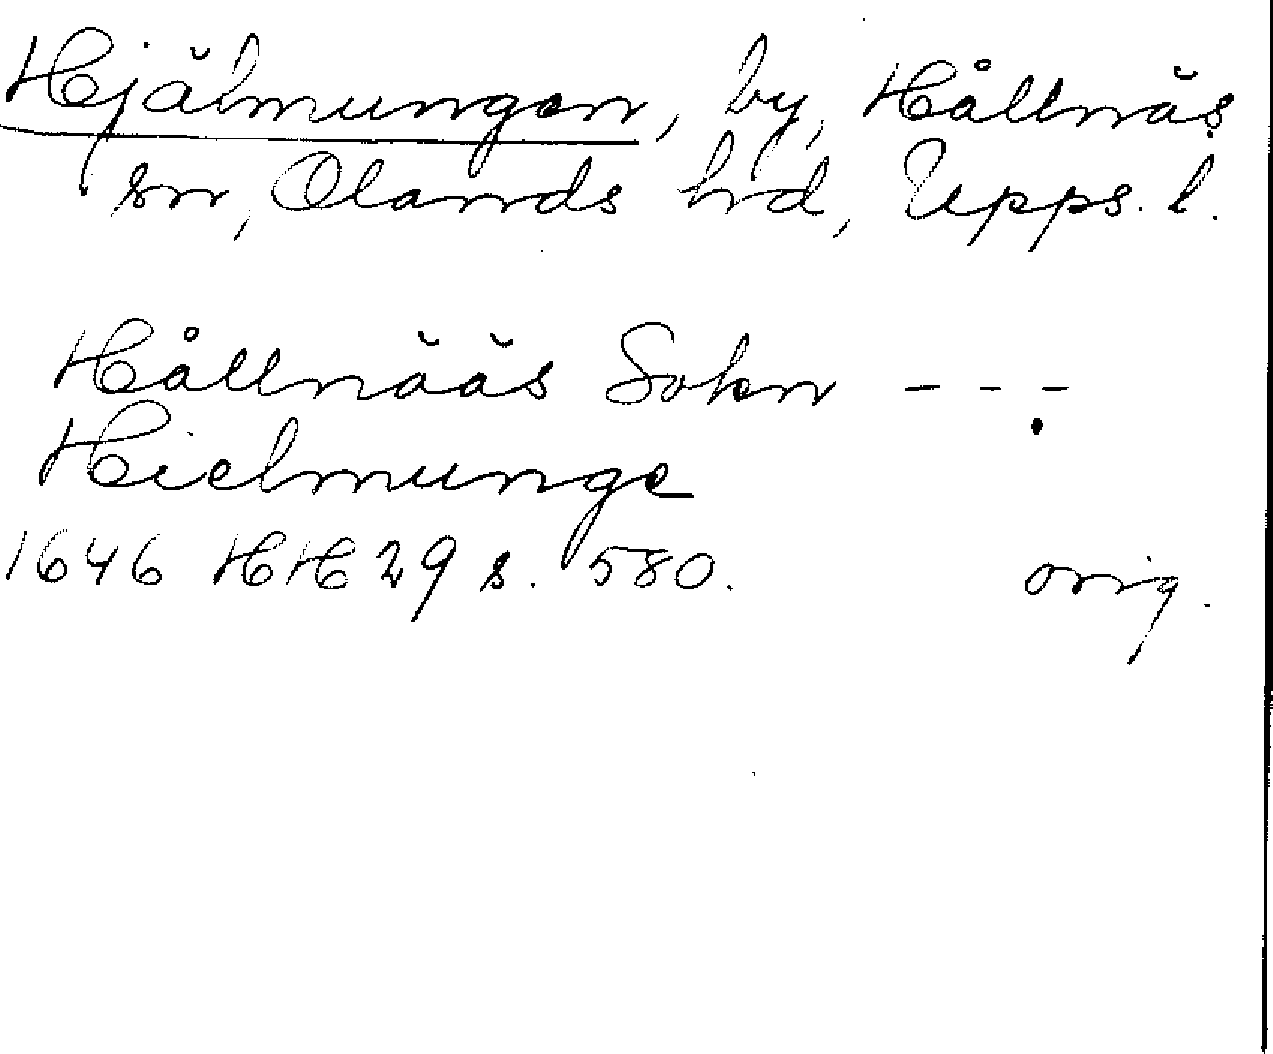 Hjälmungen, by, Hållnäs
sn, Olands hrd, Upps. l.
Hållnääs Sokn - - -
Hielmunge
1646 HH 29 s. 580. orig.